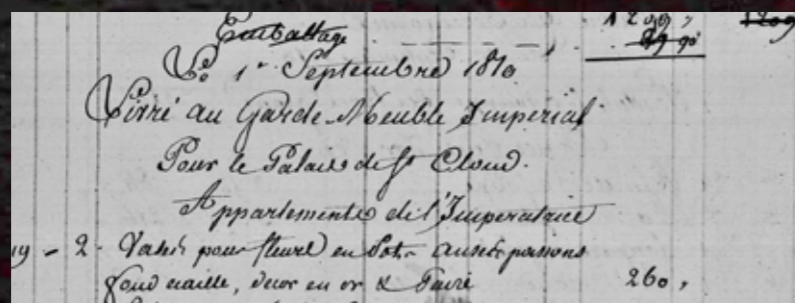 Emballage 1209 , 1209
89 90
Le 1er Septembre 1810
Livré au Garde-Meuble Imperial
Pour le Palais de St Cloud.
Appartements de l'Imperatrice
19 - 2 - Vases pour fleurs en Pots anses poissons
fond écaille, decor en or & 260 ,